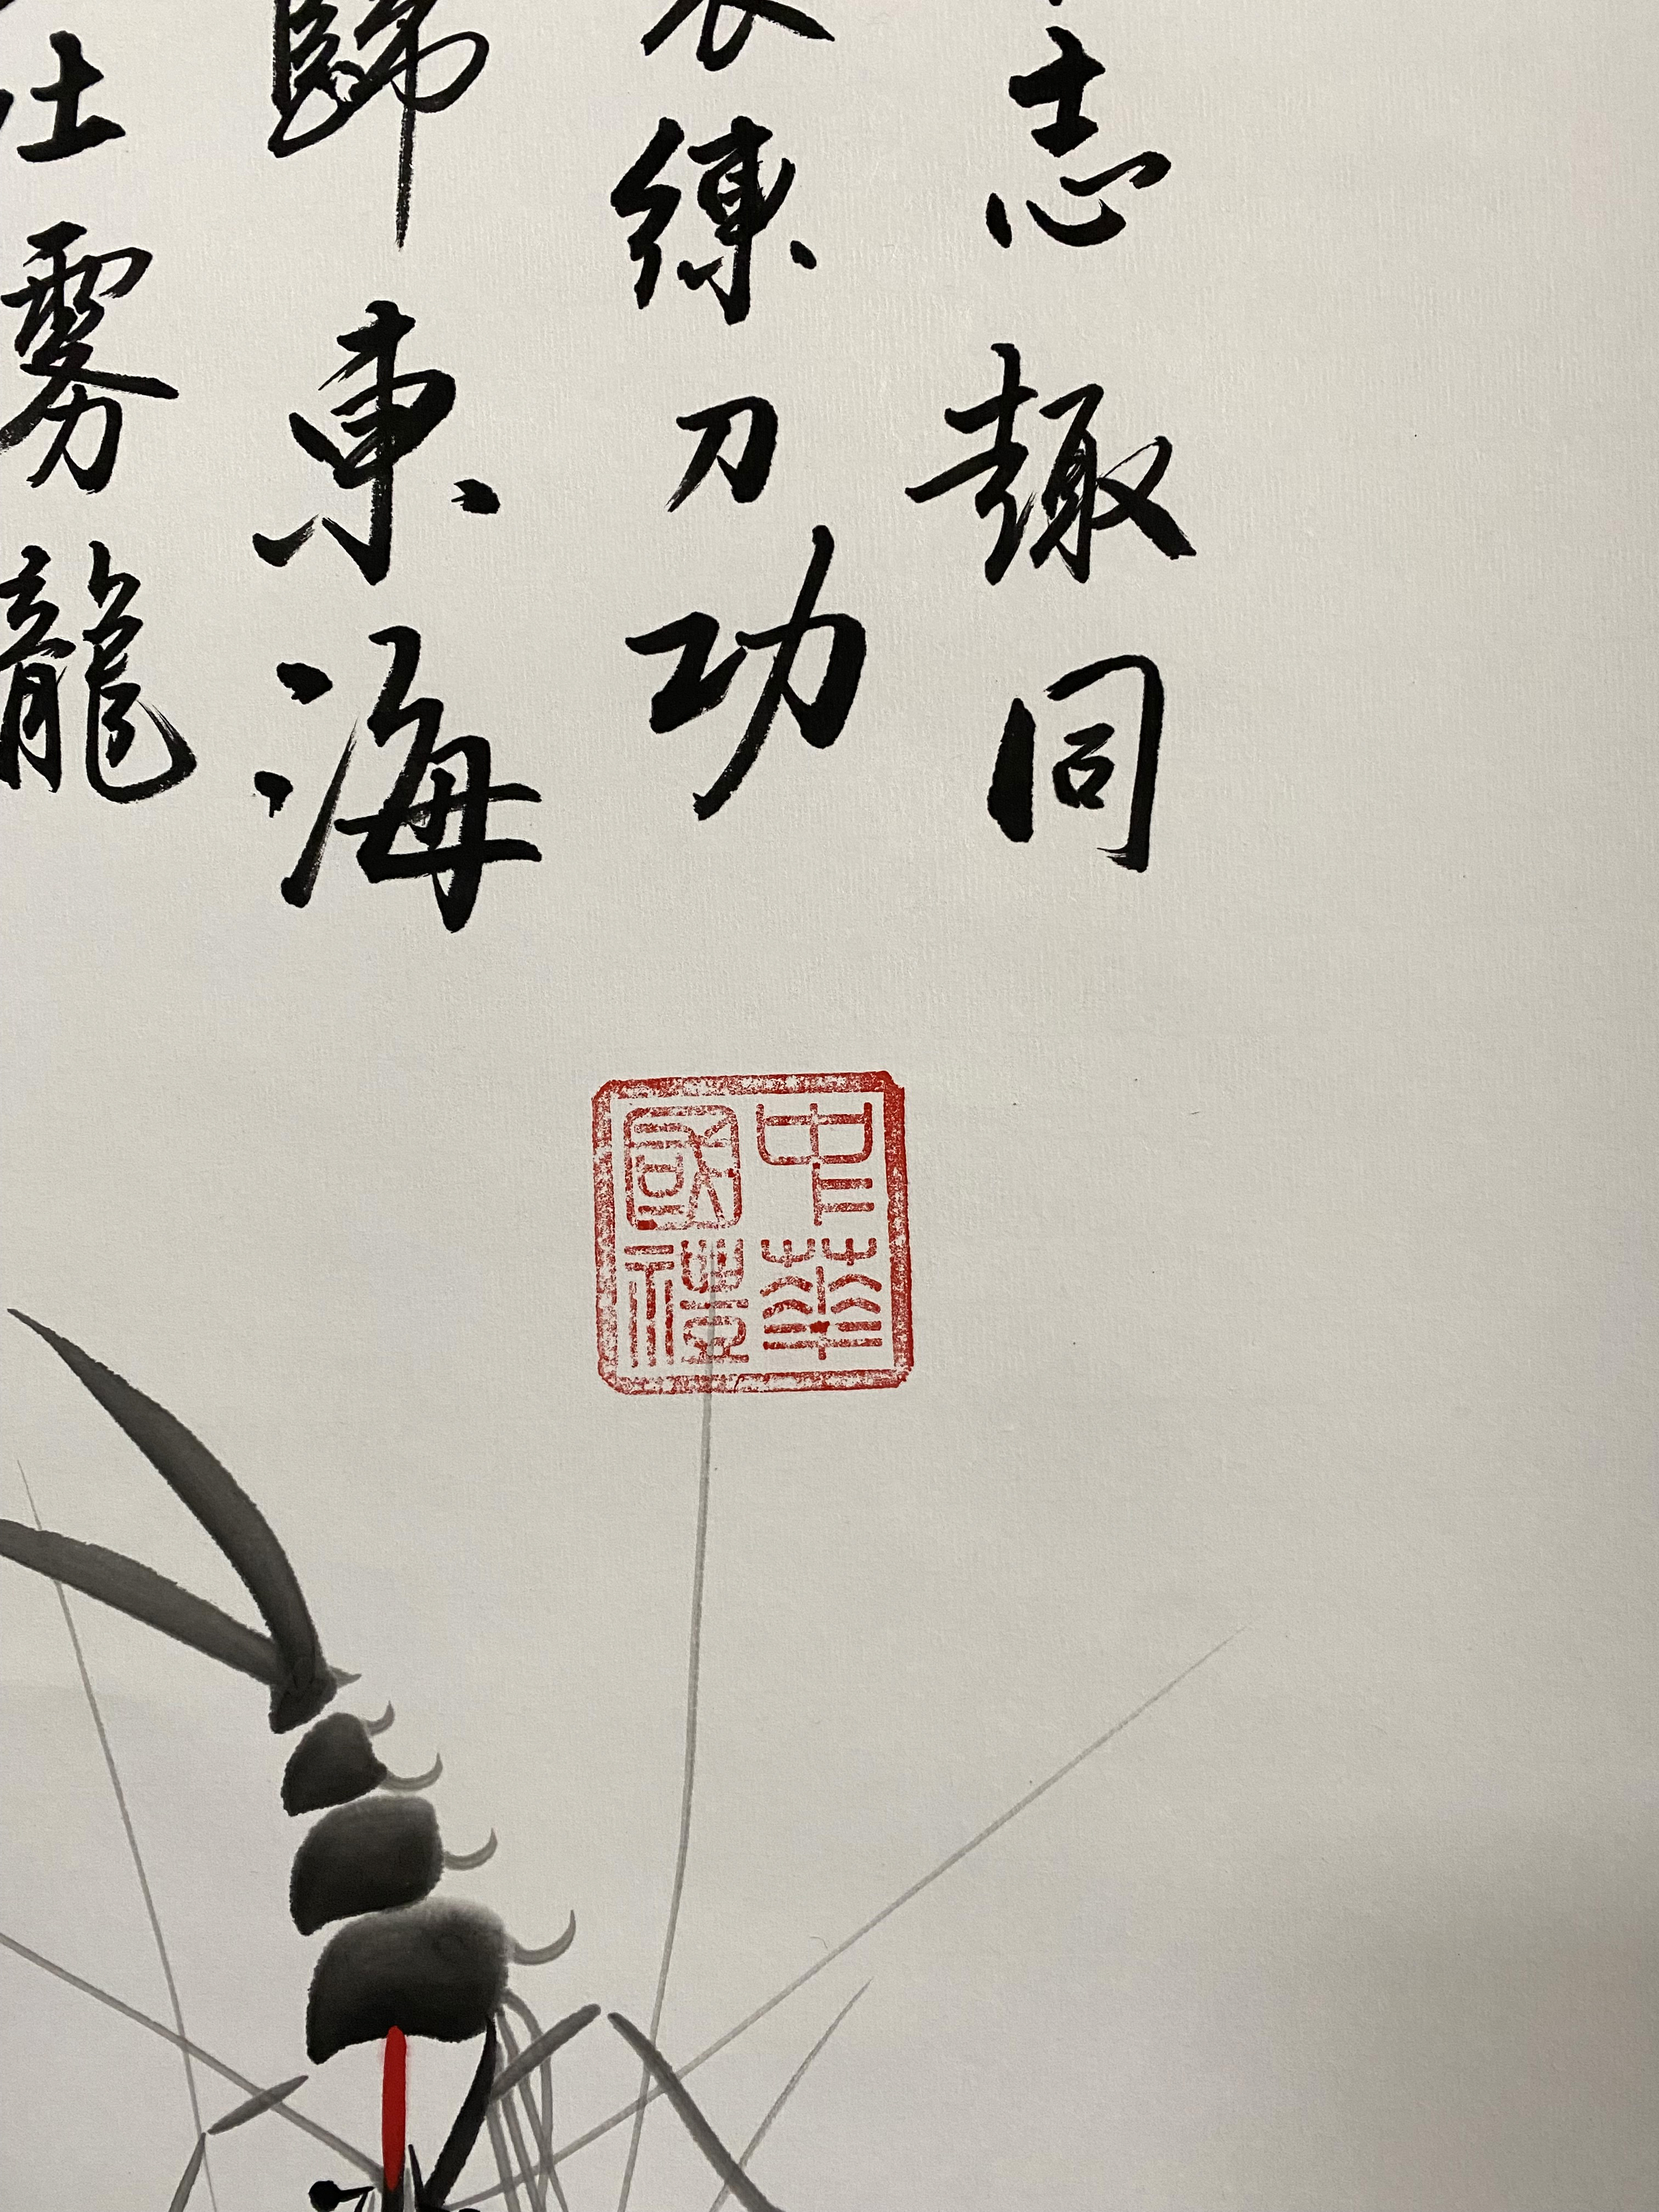 志趣同
練刀功
歸東海
仕雾龍
中華
國禮